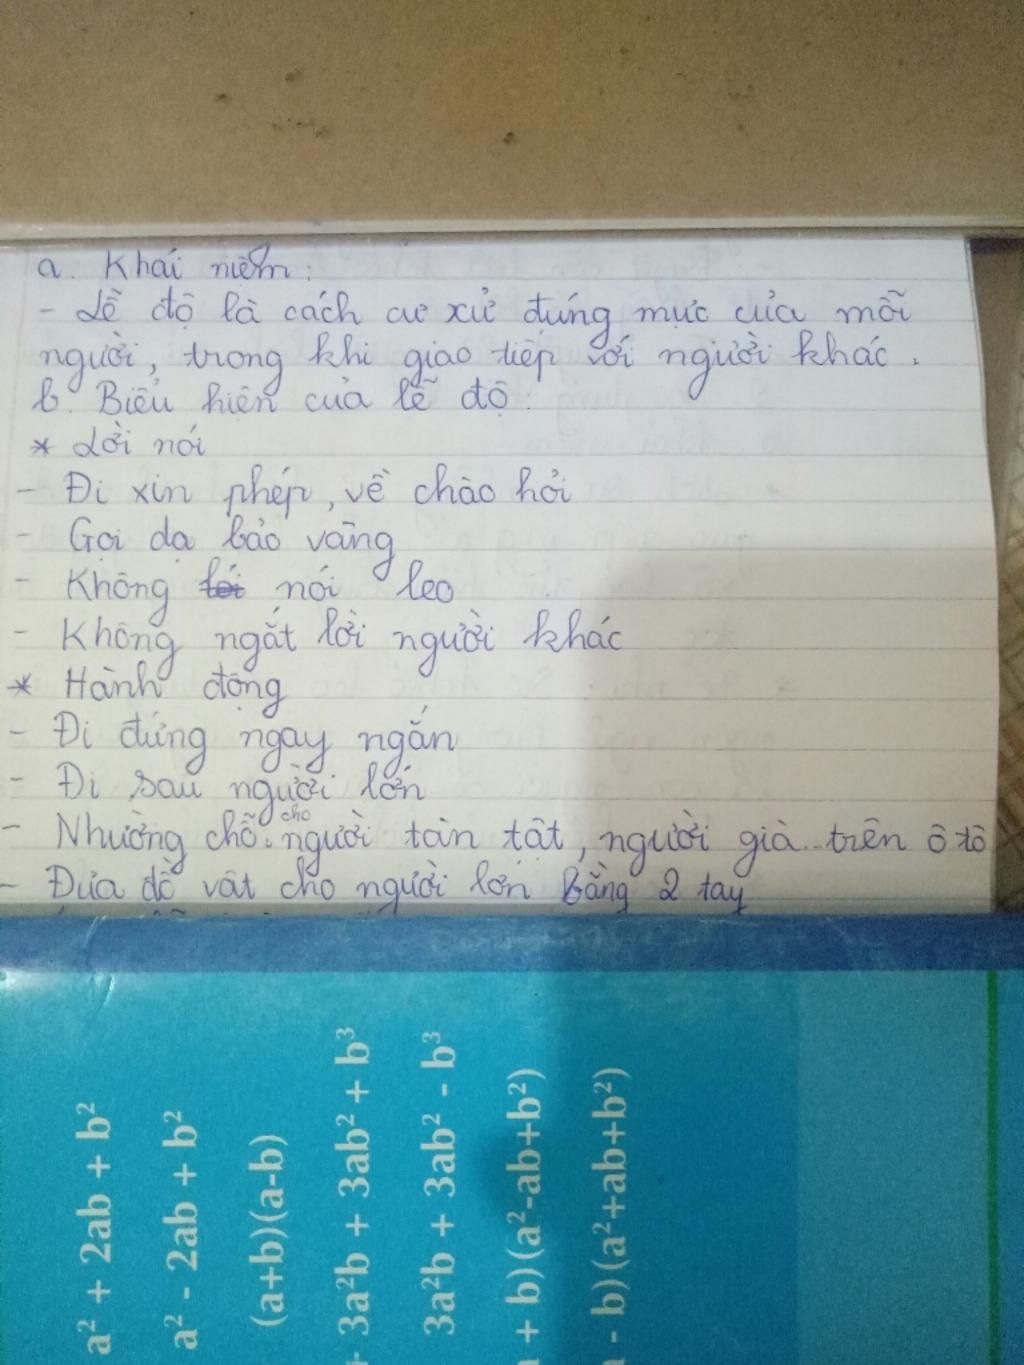 a. Khái niệm:
- Lễ độ là cách cư xử đúng mực của mỗi
người, trong khi giao tiếp với người khác.
b. Biểu hiện của lễ độ:
* Lời nói
- Đi xin phép, về chào hỏi
- Gọi dạ bảo vâng
- Không nói leo
- Không ngắt lời người khác
* Hành động
- Đi đứng ngay ngắn
- Đi sau người lớn
- Nhường chỗ cho người tàn tật, người già... trên ô tô
- Đưa đồ vật cho người lớn bằng 2 tay
a² + 2ab + b²
a² - 2ab + b²
(a+b)(a-b)
+ 3a²b + 3ab² + b³
3a²b + 3ab² - b³
+ b)(a²-ab+b²)
- b)(a²+ab+b²)